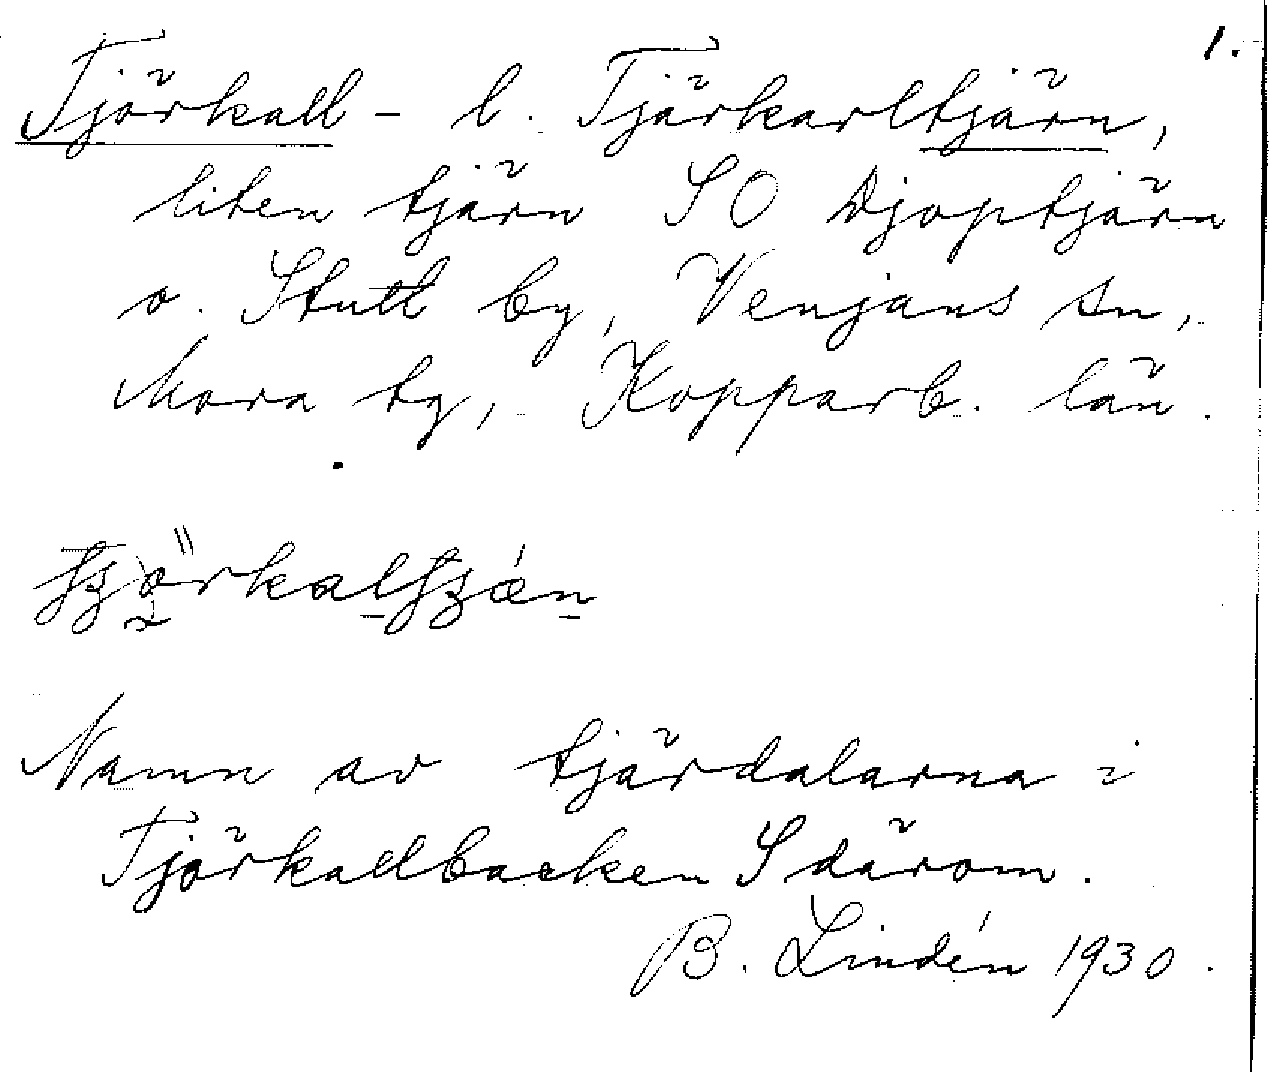 1.
Tjörkall- l. Tjärkarltjärn,
liten tjärn SO Djoptjärn
o. Stutt by, Venjans sn,
Mora tg, Kopparb. län.
Namn av tjärdalarna i
Tjörkallbacken S därom.
B. Lindén 1930.